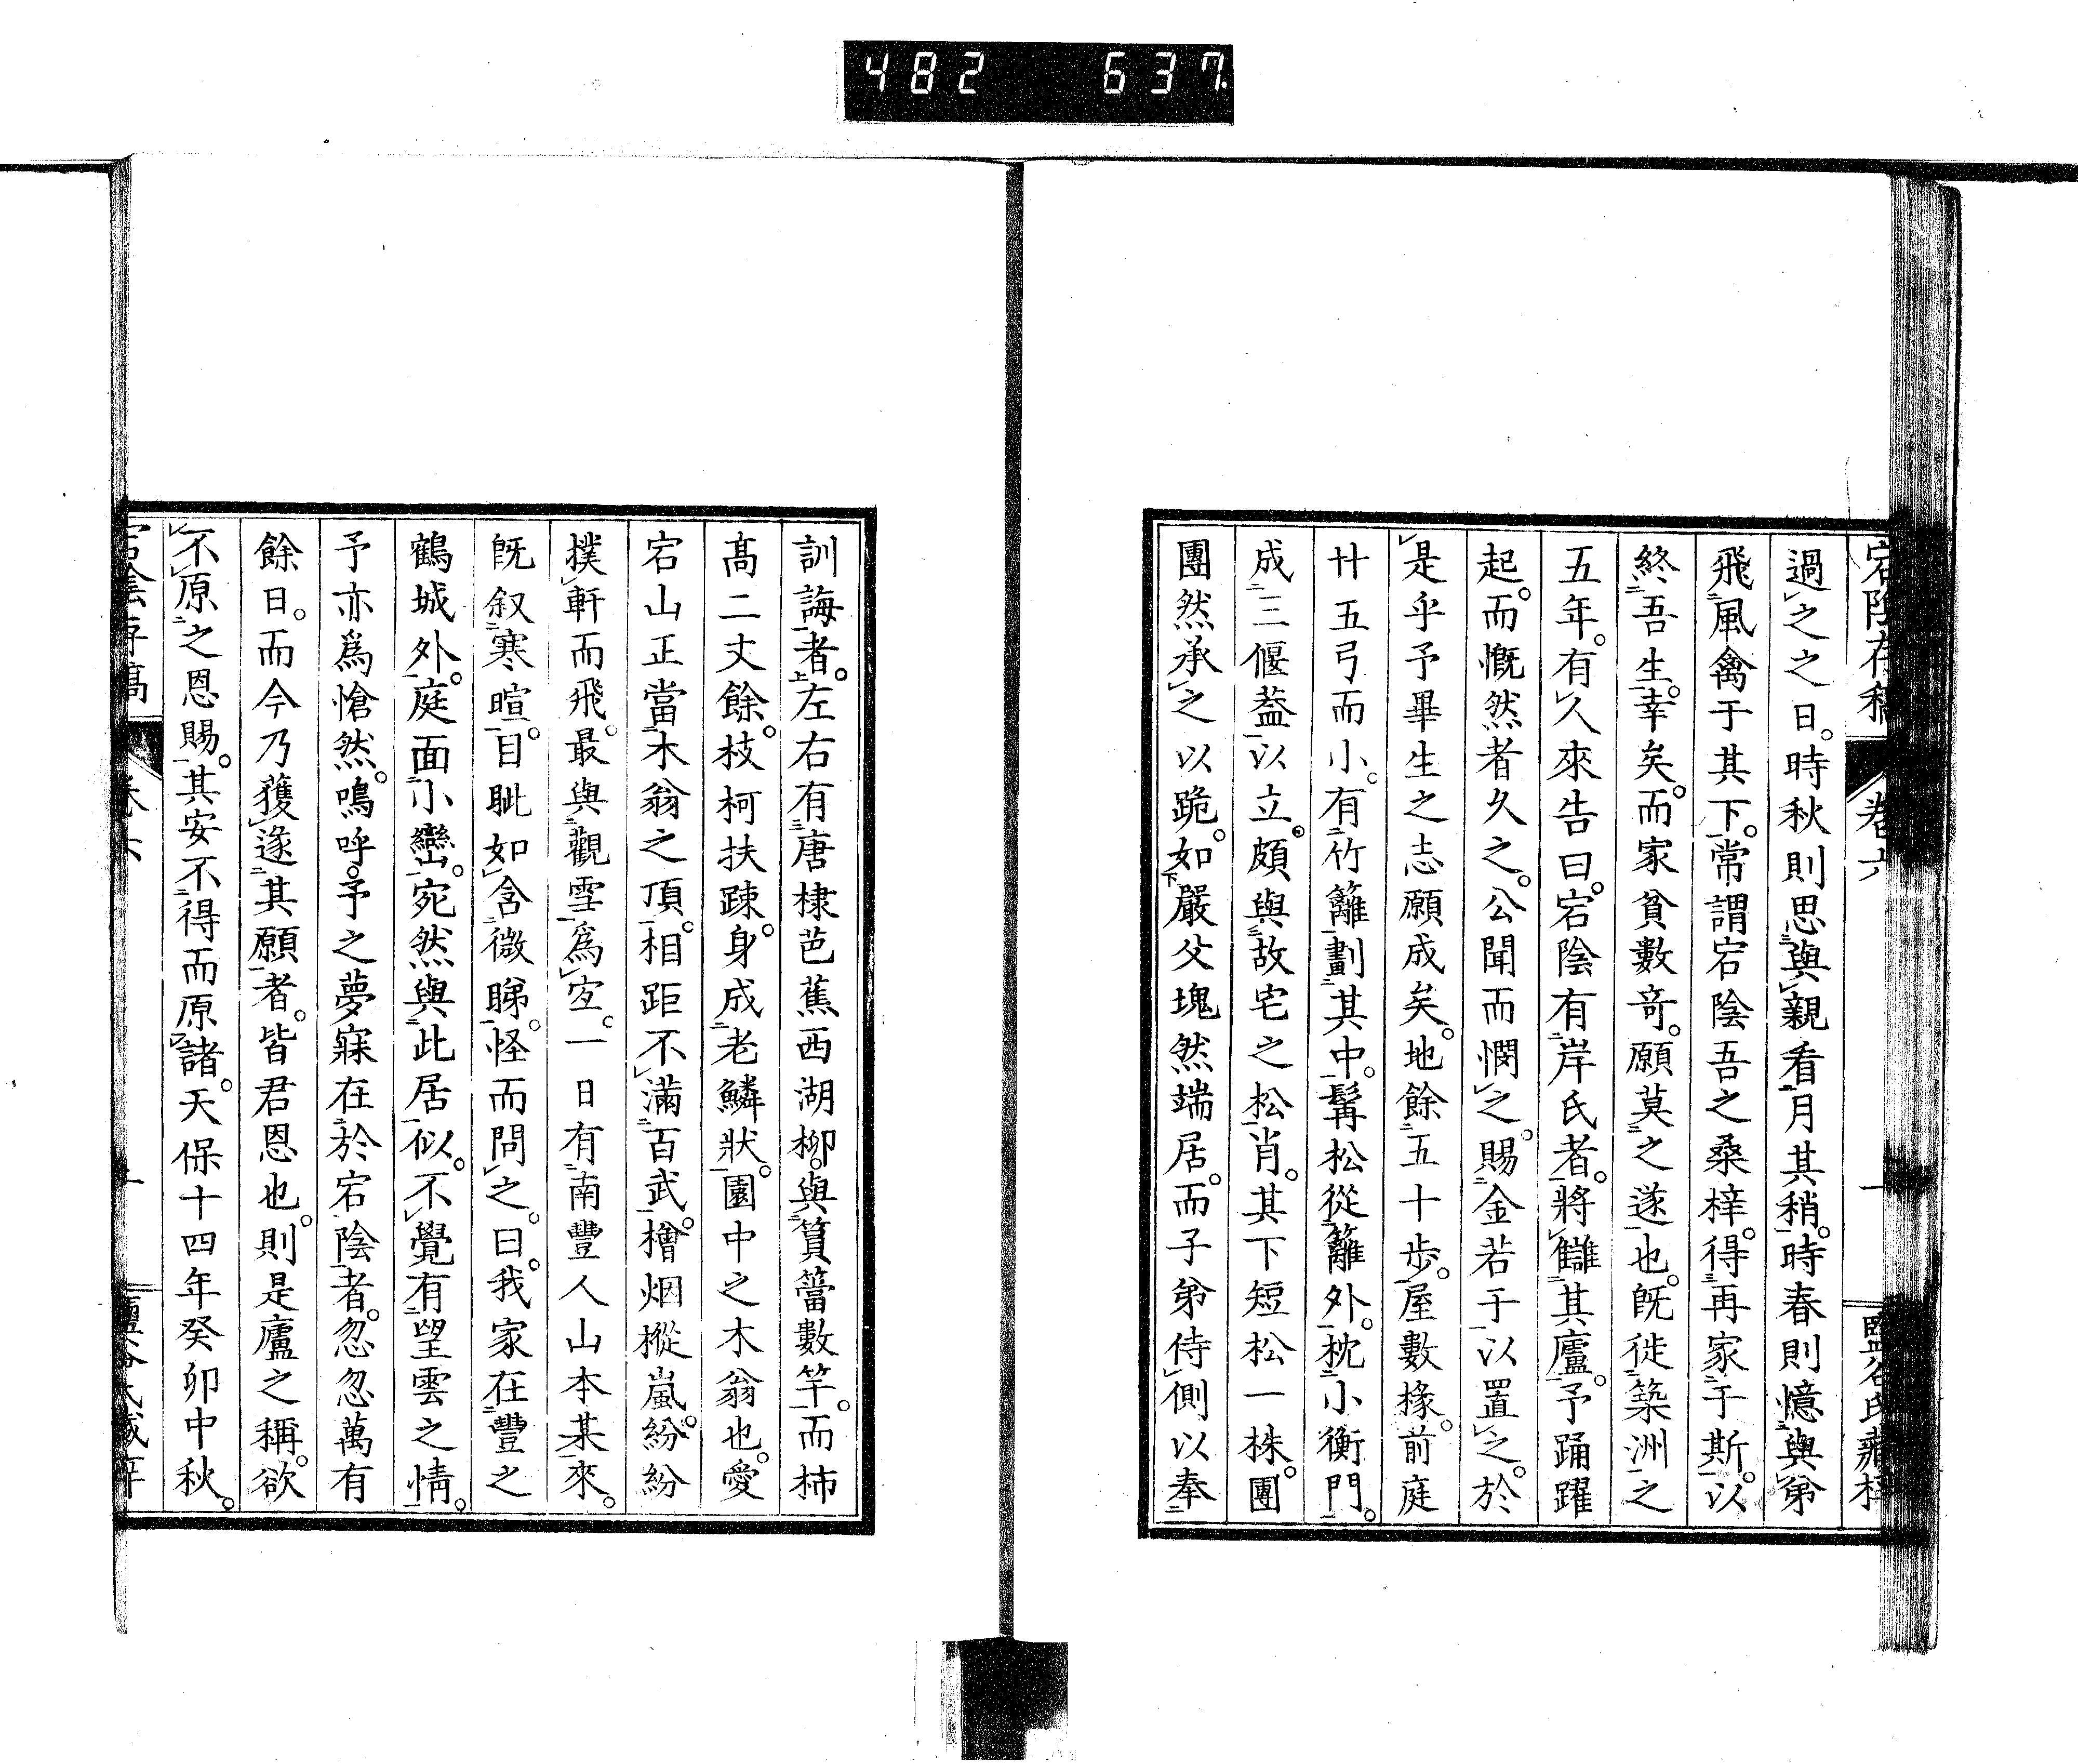 482 637
宕陰存稿 卷六 一 鹽谷氏藏梓
過之之日。時秋則思與親看月其稍。時春則憶與弟
飛風禽于其下。常謂宕陰吾之桑梓。得再家于斯。以
終吾生。幸矣。而家貧數奇。願莫之遂也。既徙築洲之
五年。有人來告曰。宕陰有岸氏者。將讎其廬。予踊躍
起。而慨然者久之。公聞而憫之。賜金若于以置之。於
是乎予畢生之志願成矣。地餘五十步。屋數椽。前庭
廿五弓而小。有竹籬劃其中。髯松從籬外。枕小衡門。
成三偃葢以立。頗與故宅之松肖。其下短松一株。團
團然承之以跪。如嚴父塊然端居。而子弟侍側以奉
訓誨者。左右有唐棣芭蕉西湖柳。與篔簹數竿。而柿
髙二丈餘。枝柯扶踈。身成老鱗狀。園中之木翁也。愛
宕山正當木翁之頂。相距不滿百武。檜烟樅嵐。紛紛
撲軒而飛。最與觀雪為宐。一日有南豐人山本某來。
既叙寒暄。目眦如含微睇。怪而問之。曰。我家在豐之
鶴城外。庭面小巒。宛然與此居似。不覺有望雲之情。
予亦爲愴然。嗚呼。予之夢寐在於宕陰者。忽忽萬有
餘日。而今乃獲遂其願者。皆君恩也。則是廬之稱。欲
不原之恩賜。其安不得而原諸。天保十四年癸卯中秋。
宕陰存稿 卷六